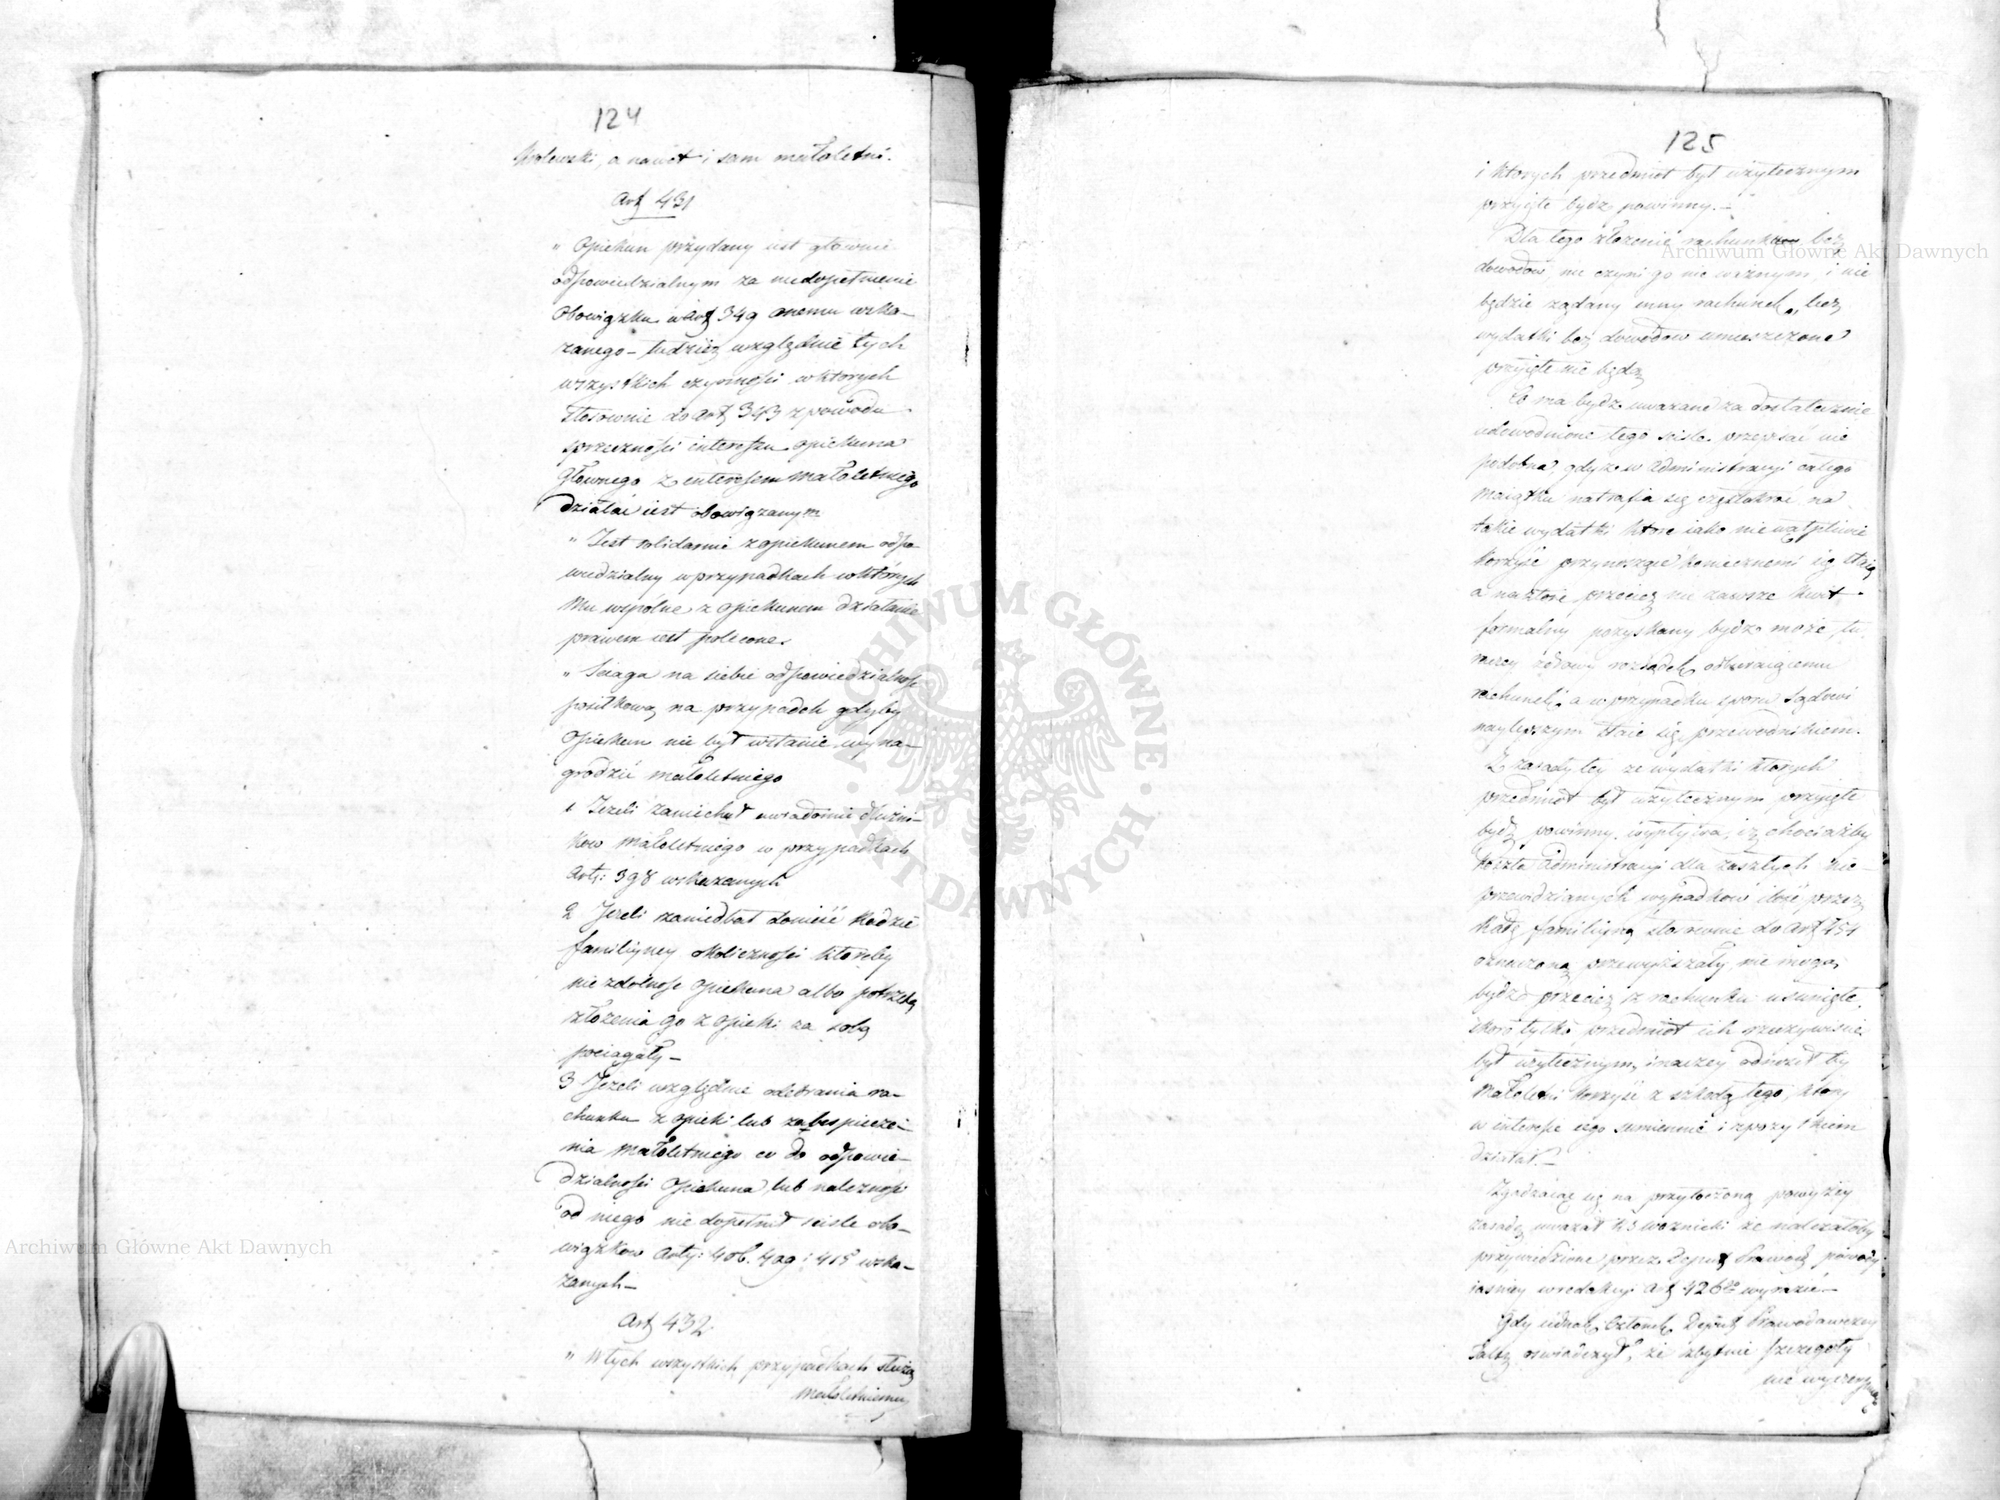 124
Królewski, a nawet i sam małoletni.
Art 431
" Opiekun przydany iest głównie
odpowiedzialnym za niedopełnienie
obowiązku w Art 349 onemu wska-
zanego – tudzież względnie tych
wszystkich czynności w których
stosownie do Art 343 z powodu
sprzeczności interessu opiekuna
Głównego z interessem Małoletniego
działać iest obowiązanym
" Jest solidarnie z opiekunem odpo
wiedzialny w przypadkach w których
Mu wspólne z opiekunem działanie
prawem iest polecone.
" Sciąga na siebie odpowiedzialność
posiłkową na przypadek gdyby
opiekun nie był wstanie wyna-
grodzić małoletniego
1 Jeżeli zaniechał uwiadomić dłużni-
ków Małoletniego w przypadkach
Art: 398 wskazanych
2 Jeżeli zaniedbał donieść Radzie
familiyney okoliczności któreby
niezdolność opiekuna albo potrzebę
złożenia go z opieki za sobą
pociągały –
3 Jeżeli względnie odebrania ra-
chunku z opieki lub zabespiecze-
nia Małoletniego co do odpowie-
dzialności Opiekuna, lub należności
od niego nie dopełnił ściśle obo-
wiązków Arty: 406. 409 i 415 wska-
zanych –
Art 432
" W tych wszystkich przypadkach służą
Małoletniemu
125
i których przedmiot był użytecznym
przyięte bydź powinny. –
Dla tego złożenie rachunków bez
dowodów nie czyni go nie ważnym, i nie
będzie żądany inny rachunek, lecz
wydatki bez dowodów umieszczone
przyięte nie będą
Co ma bydź uważane za dostatecznie
udowodnione tego ściśle przepisać nie
podobna gdyż w Administracyi całego
Maiątku natrafia się częstokroć na
takie wydatki które iako niewątpliwie
korzyść przynoszące koniecznemi się staią
a na które przecież nie zawsze kwit
formalny pozyskany bydź może, tu
raczey zdrowy rozsądek odbieraiącemu
rachunek, a w przypadku sporu Sądowi
naylepszym staie się przewodnikiem.
Z zasady tey że wydatki których
przedmiot był użytecznym przyięte
bydź powinny, wypływa, iż chociażby
koszta Administracyi dla zaszłych nie-
przewidzianych wypadków ilość przez
Radę familiyną stosownie do Art 454
oznaczoną przewyższały, nie mogą
bydź przecież z rachunku usunięte,
skoro tylko przedmiot ich rzeczywiście
był użytecznym, inaczey odniósł by
Małoletni korzyść z szkodą tego, który
w interessie iego sumiennie i z pożytkiem
działał. –
Zgadzaiąc się na przytoczoną powyżey
zasadę uważał KS Woznicki że należałoby
przywiedzione przez Deput Prawod powody
iaśniey w redakcyi Art 426 wyrazić –
Gdy iednak Członek Deput Prawodawczey
oświadczył, że zbytnie szczegóły
nie wyczerpu